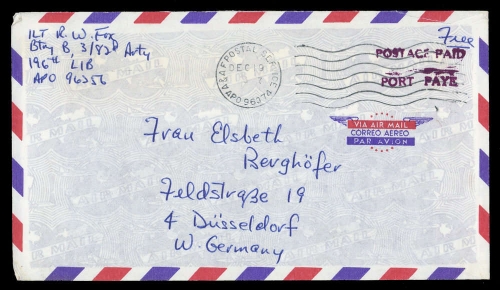 1LT R. W. Fox
Btry B, 3/82d Arty
196th LIB
APO 96256
Free
A&AF POSTAL SER.
DEC 19
APO 96374
POSTAGE PAID
PORT PAYE
VIA AIR MAIL
CORREO AEREO
PAR AVION
Frau Elsbeth
Berghöfer
Feldstraße 19
4 Düsseldorf
W. Germany